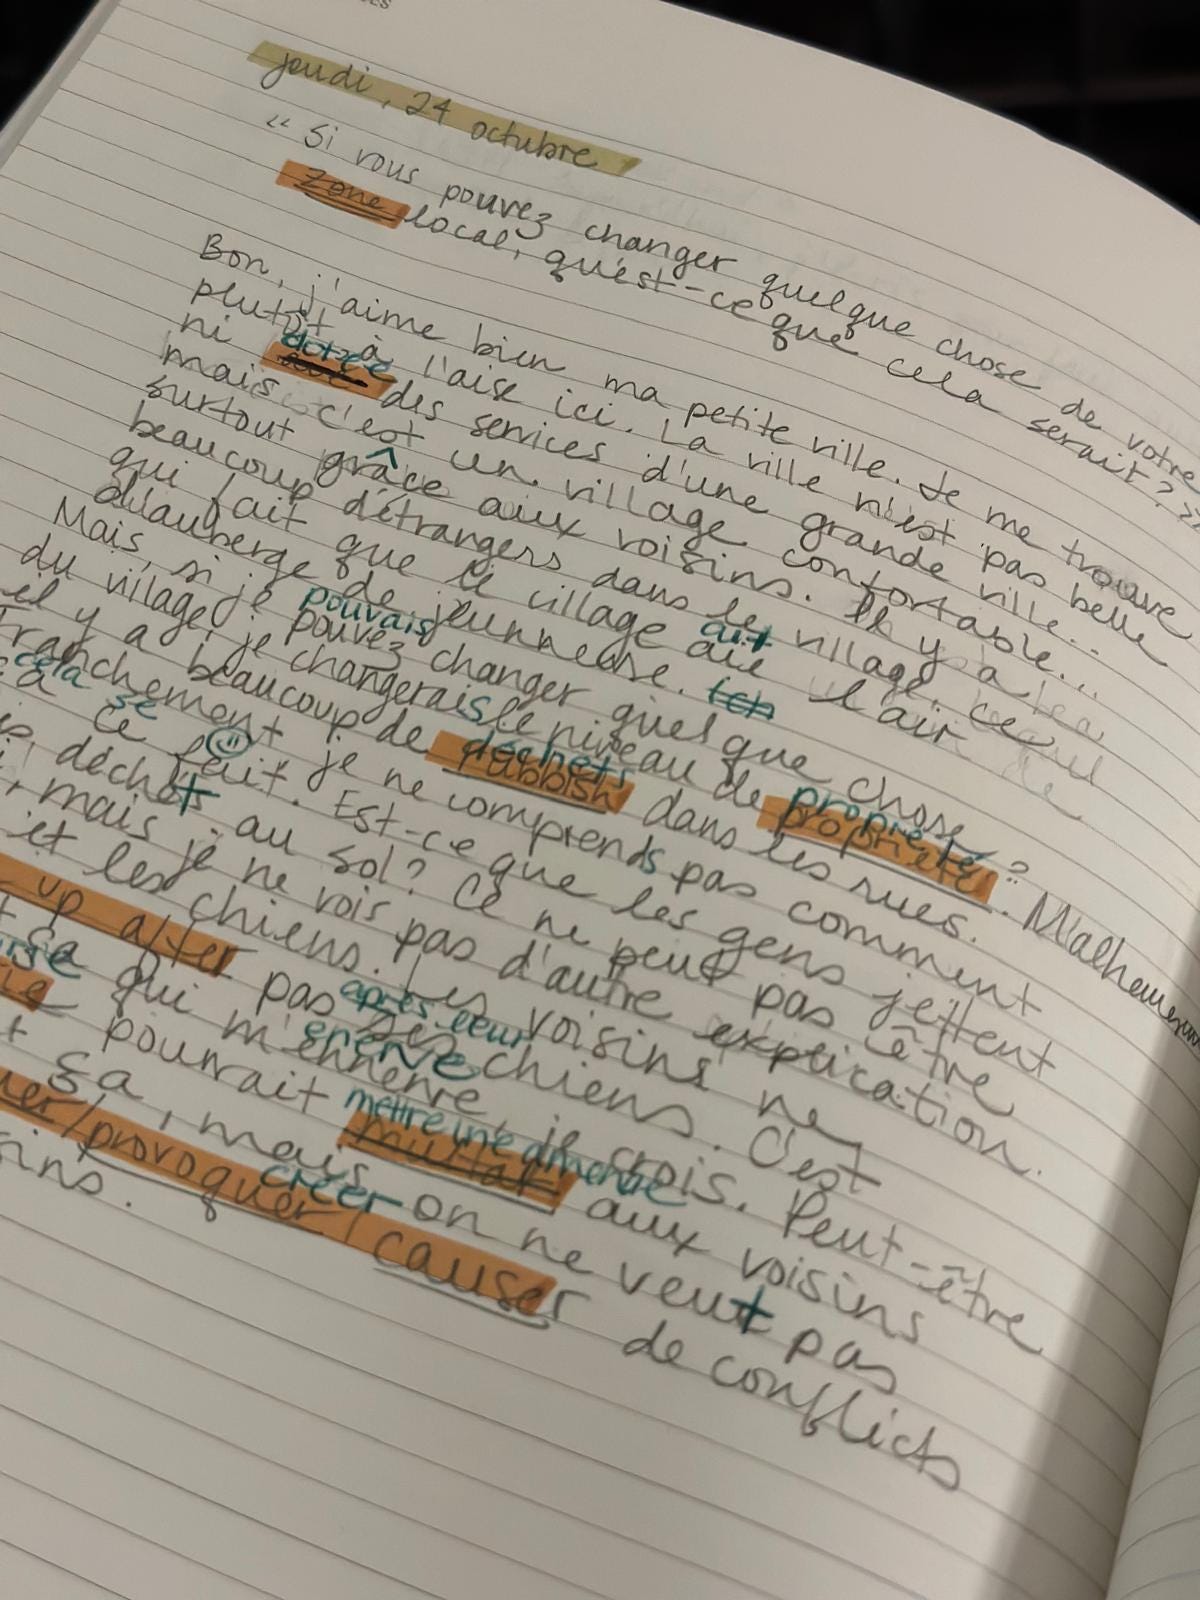 jeudi, 24 octubre
“ Si vous pouvez changer quelque chose de votre
zone local, qu'est-ce que cela serait? »
Bon, j'aime bien ma petite ville. Je me trouve
plutôt à l'aise ici. La ville n'est pas belle
ni dotée des services d'une grande ville.
mais c'est un village confortable...
surtout grâce aux voisins. Il y a
beaucoup d'étrangers dans le village, ce
qui fait que le village ait l'air
d'auberge de jeunnesse.
Mais, si je pouvais pouvez changer quelque chose
du village, je changerais le niveau de propreté propriété. Malheureusem
il y a beaucoup de déchets rubbish dans les rues.
Franchement je ne comprends pas comment
cela ça se fait. Est-ce que les gens jettent
déchets au sol? Ce ne peut pas être
, mais je ne vois pas d'autre explication.
et les chiens. Les voisins ne
up after pas après leur ses chiens. C'est
sa qui m'énerve m'ennerve, je crois. Peut-être
pourrait mettre une amende aux voisins
sa, mais on ne veut pas
/provoquer/ créer causer de conflicts
sins.